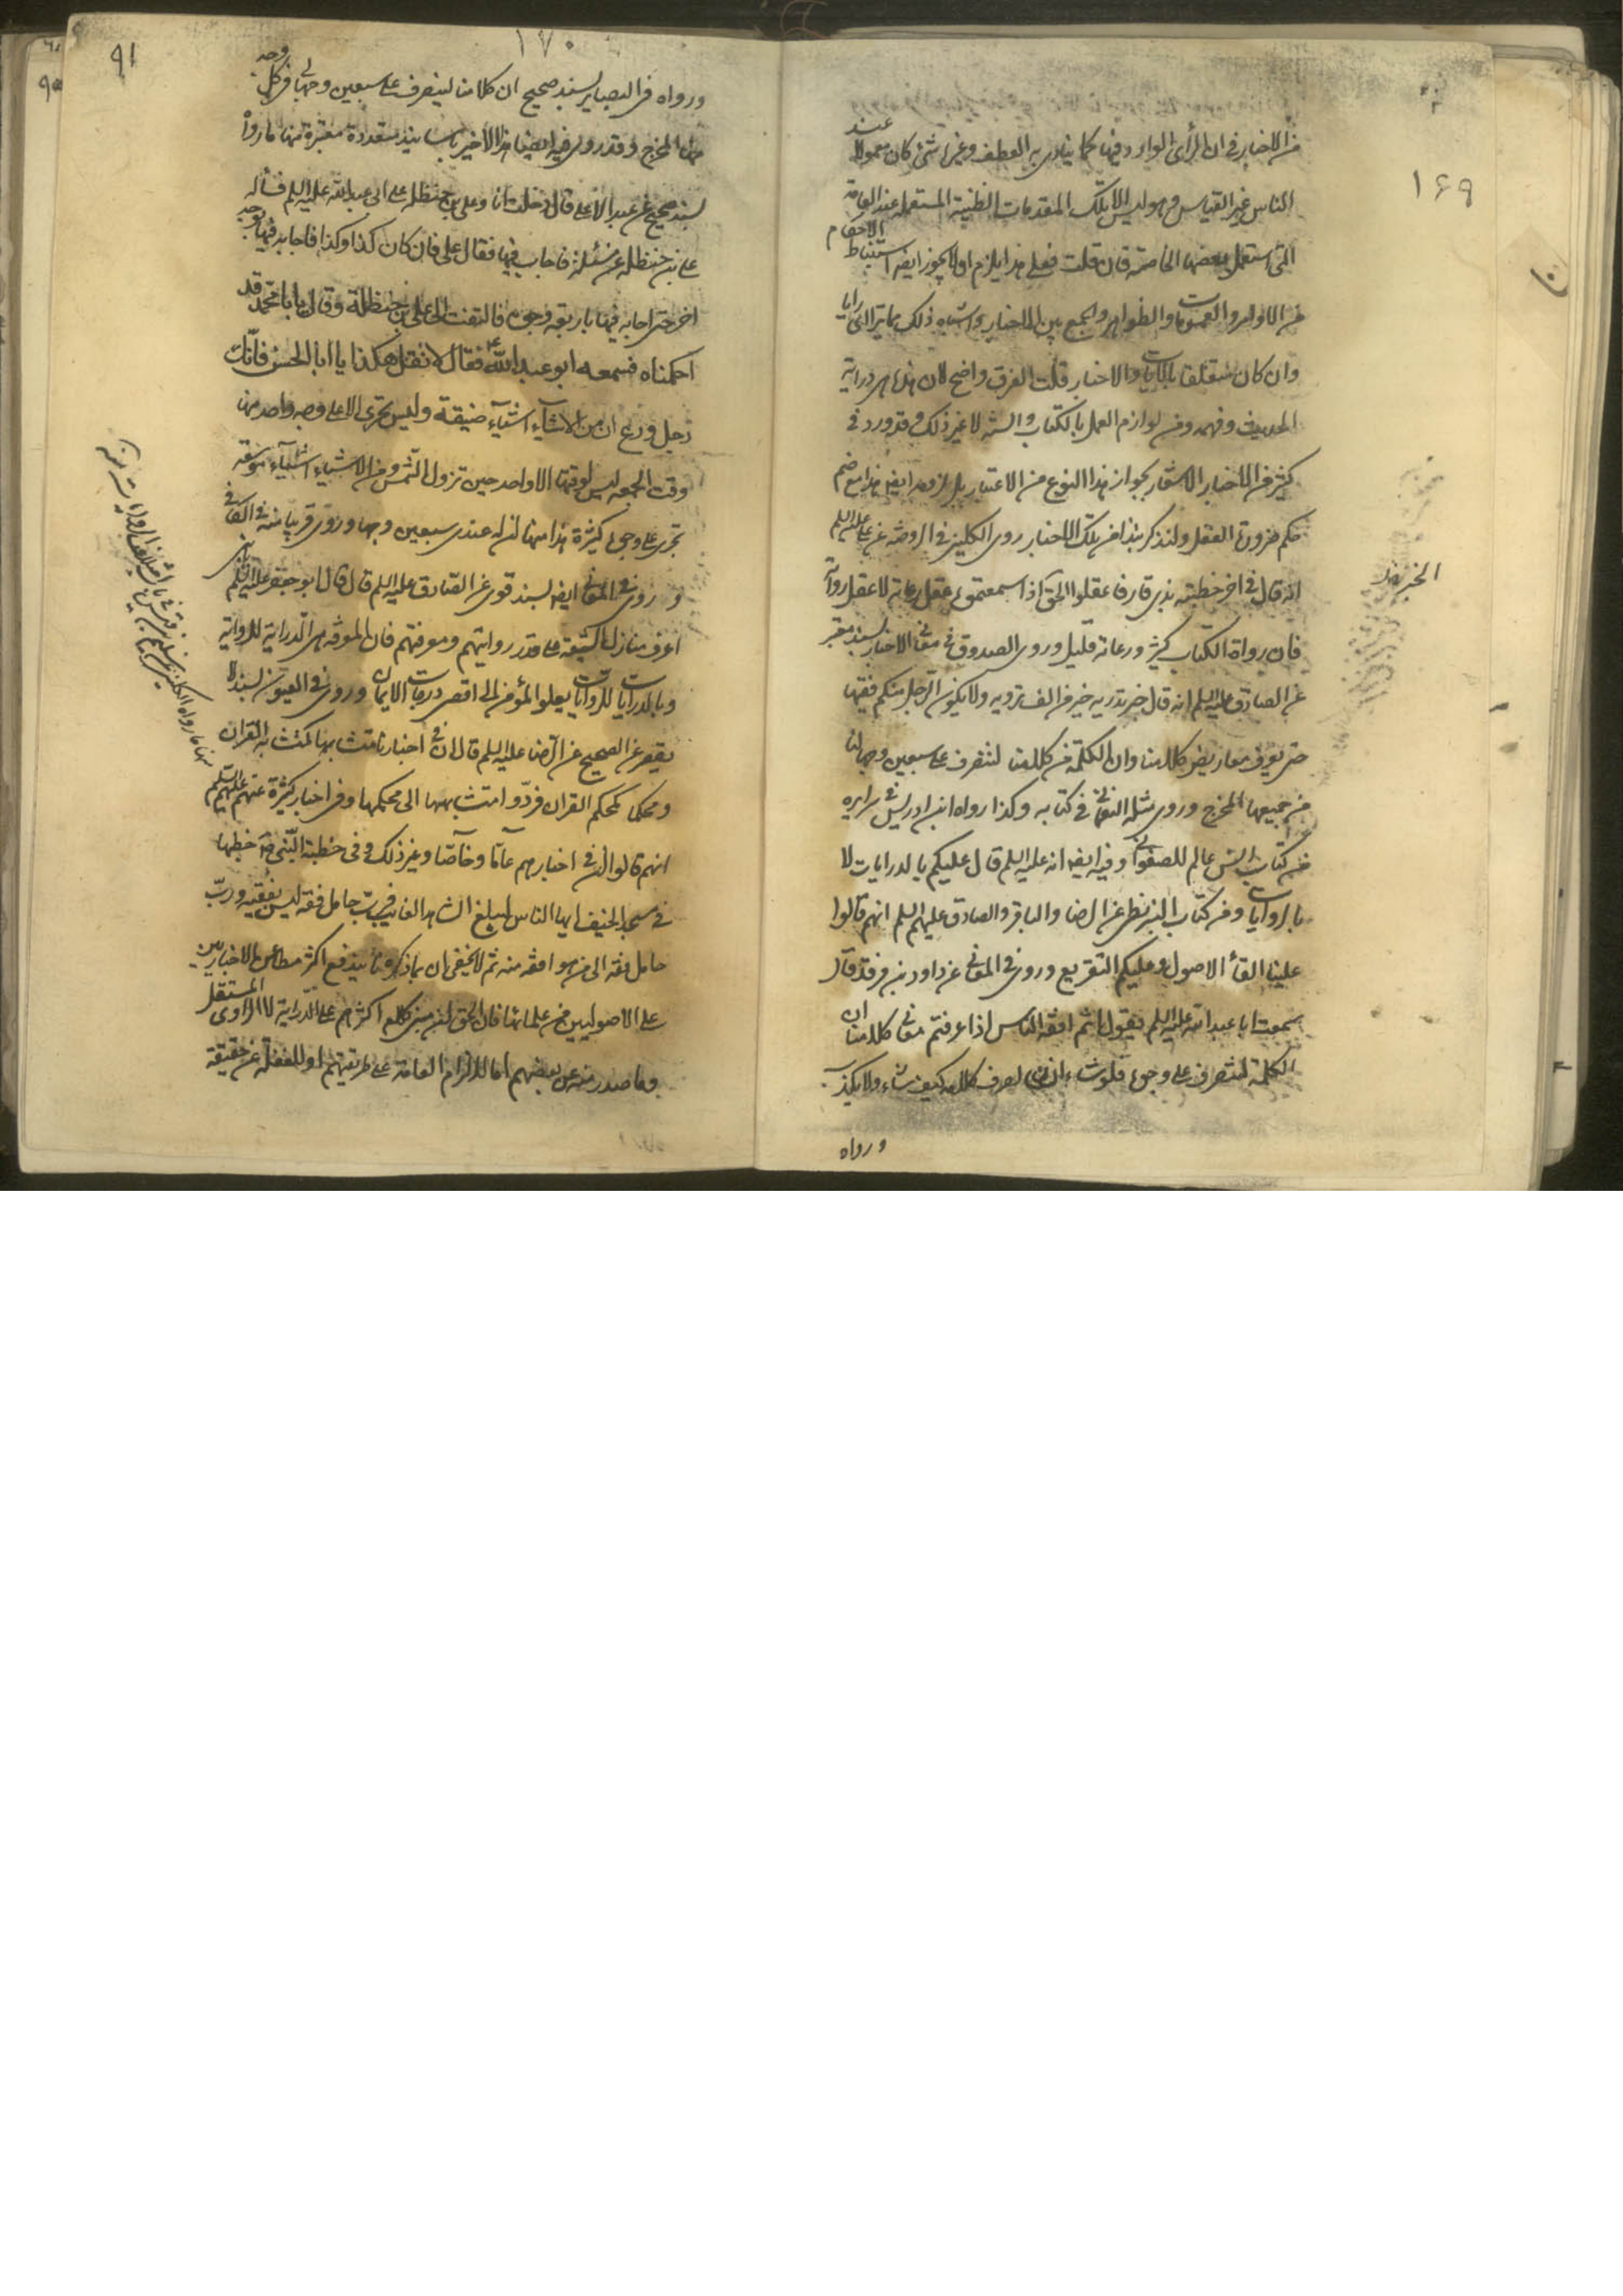 ١۶٩
من الاخبار في ان الرأى الوارد فيها كما ينادى به العطف وغيره شئ كان معمولا عند
الناس غير القياس وهو ليس الا تلك المقدمات الظنية المستعملة عند العامة
التى استعمل بعضها الخاصة فان قلت فعلى هذا يلزم ان لا يجوز ايضا استنباط الاحكام
من الاوامر والعمومات والظواهر والجمع بين الاخبار واشباه ذلك مما
وان كان متعلقا بالايات والاخبار قلت الفرق واضح لان هذا هى دراية
الحديث وفهمه ومن لوازم العمل بالكتاب والسنة لا غير ذلك وقد ورد في
كثير من الاخبار الاشعار بجواز هذا النوع من الاعتبار بل لزومه ايضا هذا مع
حكم ضرورة العقل ولنذكر نبذا من تلك الاخبار روى الكليني في الروضة عن على عليه السلم
انه قال في اخر خطبته بذى قار فاعقلوا الحق اذا سمعتموه عقل رعاية لا عقل رواية
فان رواة الكتاب كثير ورعاته قليل وروى الصدوق في معانى الاخبار بسند معتبر
عن الصادق عليه السلم انه قال خبر تدريه خير من الف ترويه ولا يكون الرجل منكم فقيها
حتى يعرف معاريض كلامنا وان الكلمة من كلامنا لتنصرف على سبعين وجها لنا
من جميعها المخرج وروى مثله النعمانى في كتابه وكذا رواه ابن ادريس في سرايره
من كتاب انس عالم للصفوانى وفيه ايضا انه عليه السلم قال عليكم بالدرايات لا
بالروايات ومن كتاب البزنطى عن الرضا والباقر والصادق عليهم السلم انهم قالوا
علينا القاء الاصول وعليكم التفريع وروى في المعانى عن داود بن فرقد قال
سمعت ابا عبد الله عليه السلم يقول انتم افقه الناس اذا عرفتم معانى كلامنا ان
الكلمة لتنصرف على وجوه فلو شاء انسان لصرف كلامه كيف شاء ولا يكذب
ورواه
١٧٠
٩١
ورواه في البصاير بسند صحيح ان كلامنا لينصرف على سبعين وجها لى في كل وجه
منها المخرج وقد روى فيه ايضا هذا الاخير باسانيد متعددة معتبرة منها ما رواه
بسند صحيح عن عبد الاعلى قال دخلت انا وعلى بن حنظلة على ابى عبد الله عليه السلم فسأله
على بن حنظلة عن مسئلة فاجاب فيها فقال على فان كان كذا وكذا فاجابه فيها بوجه
اخر حتى اجابه فيها باربعة وجوه فالتفت الى على بن حنظلة وقال يا با محمد قد
احكمناه فسمعه ابو عبد الله ع فقال لا تقل هكذا يا ابا الحسن فانك
رجل ورع ان من الاشياء اشياء ضيقة وليس تجرى الا على وجه واحد منها
وقت الجمعة ليس لوقتها الا واحد حين تزول الشمس ومن الاشياء اشياء موسعة
تجرى على وجوه كثيرة هذا منها ان له عندى سبعين وجها وروى قريبا منه في الكافى
وروى في المعانى ايضا بسند قوى عن الصادق عليه السلم قال قال ابو جعفر عليه السلم يا بنى
اعرف منازل الشيعة على قدر روايتهم ومعرفتهم فان المعرفة هى الدراية للرواية
وبالدرايات للروايات يعلو المؤمن الى اقصى درجات الايمان وروى في العيون بسند لا
يقصر عن الصحيح عن الرضا عليه السلم قال ان في اخبارنا متشابها كمتشابه القران
ومحكما كمحكم القران فردوا متشابهها الى محكمها وفى اخبار كثيرة عنهم عليهم السلم
انهم قالوا ان في اخبارهم عاما وخاصا وغير ذلك وفى خطبة النبى ص خطبها
في مسجد الخيف ايها الناس ليبلغ الشاهد الغايب فرب حامل فقه ليس بفقيه ورب
حامل فقه الى من هو افقه منه ثم لا يخفى ان بما ذكرنا يندفع اكثر مطاعن الاخباريين
على الاصوليين من علمائنا فان الحق ان مبنى كلام اكثرهم على الدراية لا الرأى المستقل
وما صدر منه عن بعضهم اما لالزام العامة على طريقتهم او للغفلة عن حقيقة